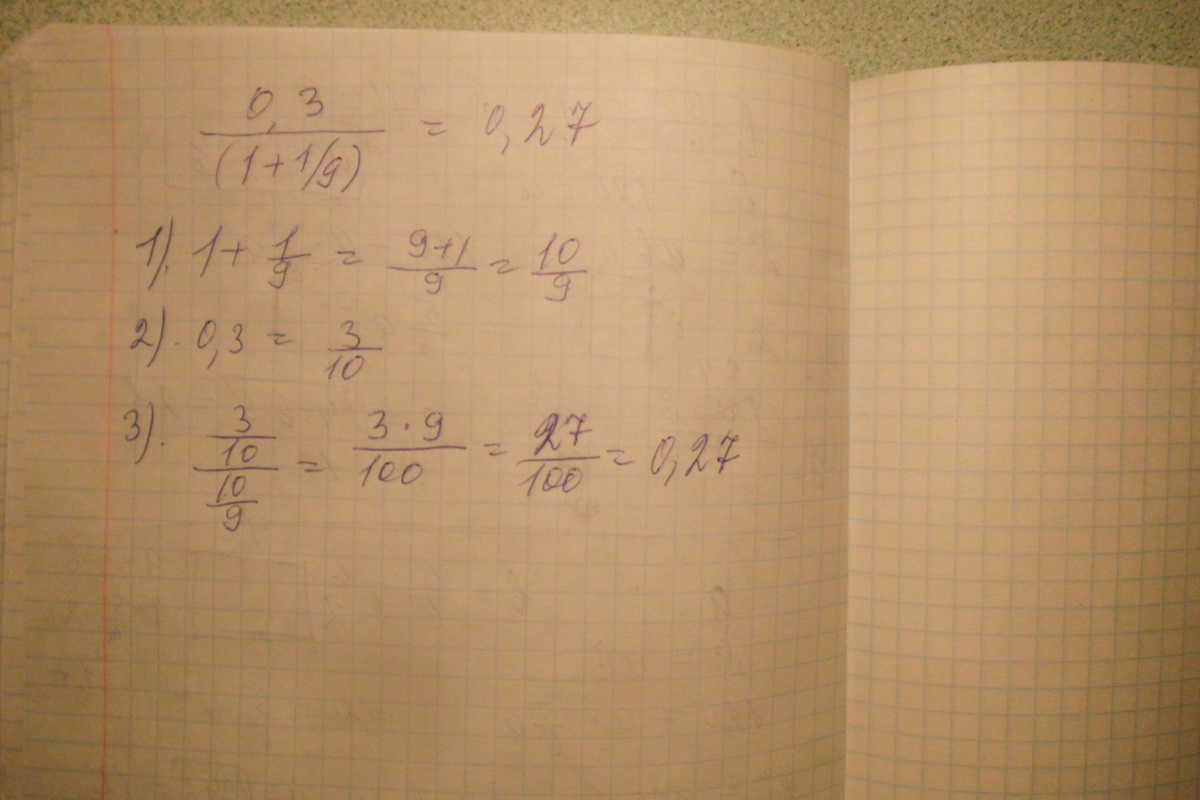 0,3/(1+1/9) = 0,27
1). 1 + 1/9 = 9+1/9 = 10/9
2). 0,3 = 3/10
3). 3/10/10/9 = 3·9/100 = 27/100 = 0,27